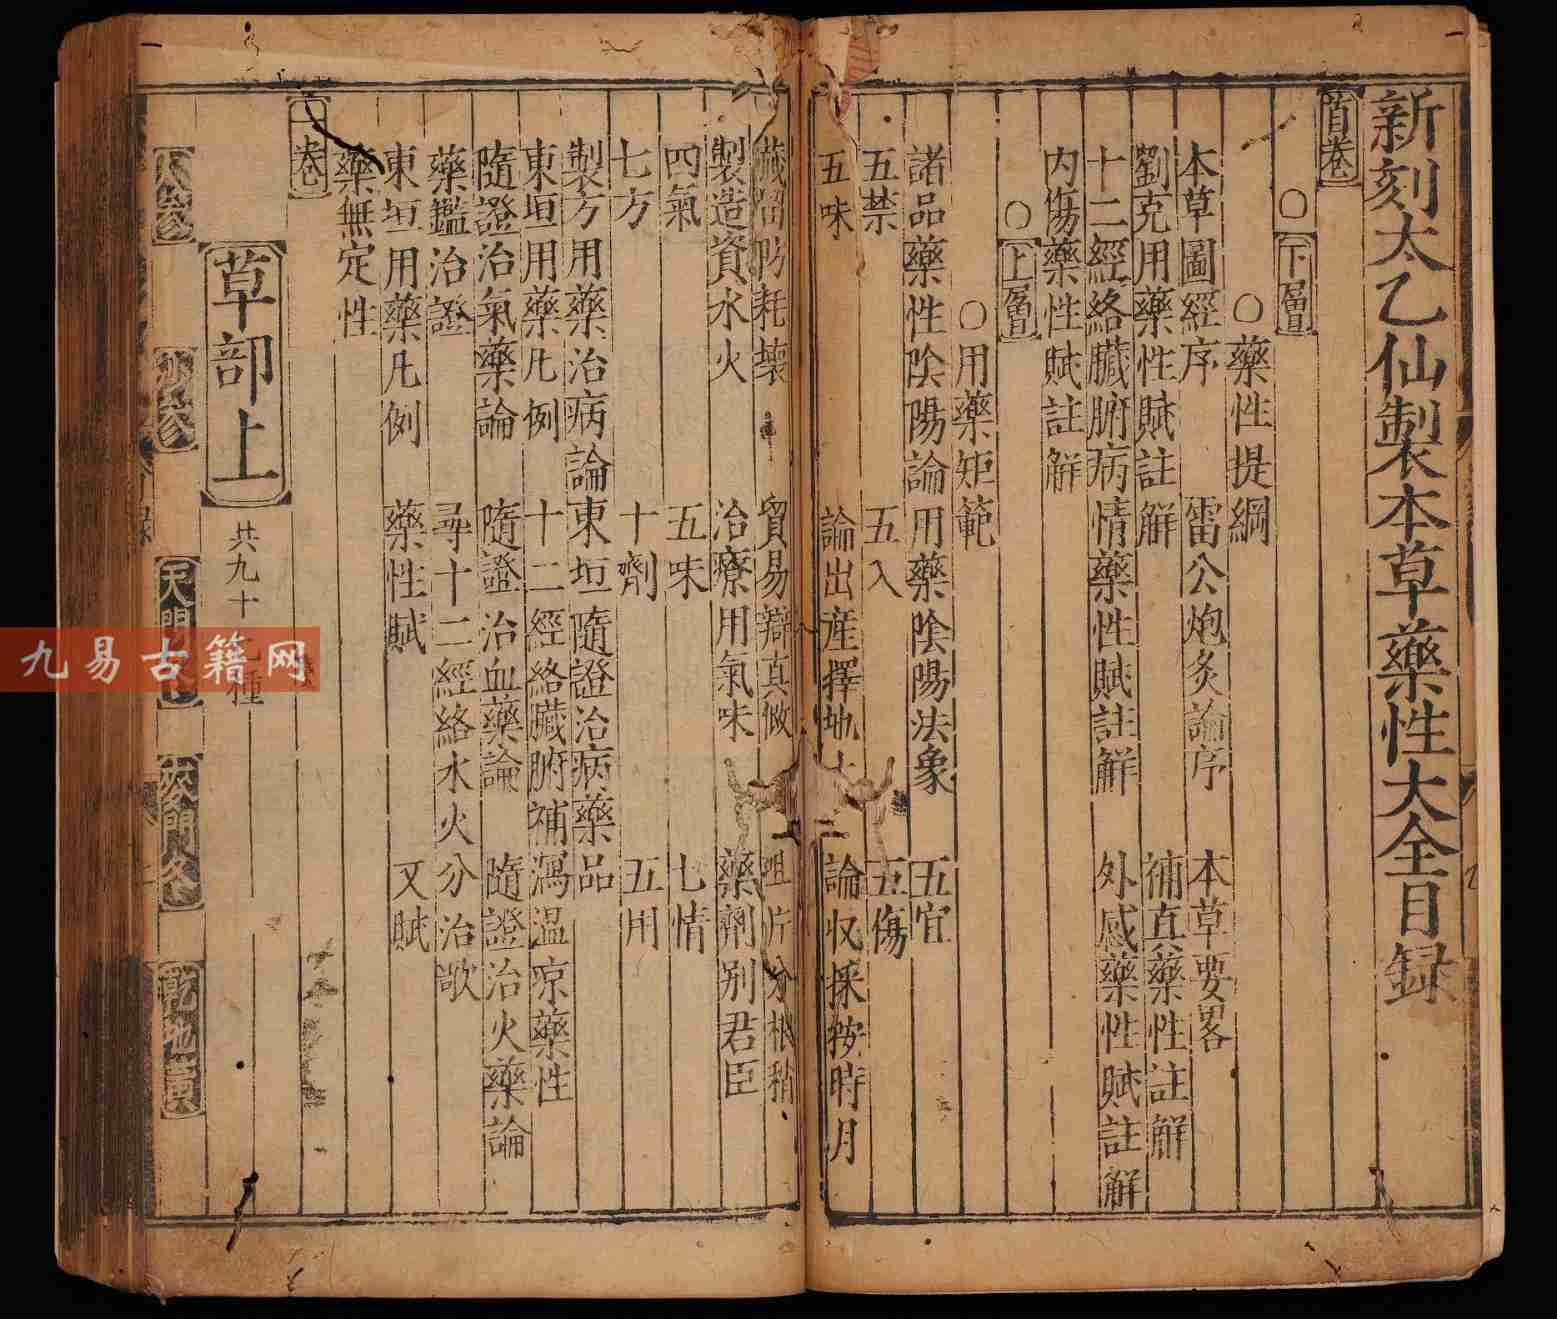 新刻太乙仙製本草藥性大全目録
首卷
○下層
○藥性提綱
本草圖經序 雷公炮炙論序 本草要畧
劉克用藥性賦註解 補直藥性註解
十二經絡臟腑病情藥性賦註解 外感藥性賦註解
内傷藥性賦註解
○上層
○用藥矩範
諸品藥性陰陽論 用藥陰陽法象 五宜
五禁 五入 五傷
五味 論出產擇地土 論収採按時月
藏留防耗壞 貿易辯真假 咀片分根稍
製造資水火 治療用氣味 藥劑别君臣
四氣 五味 七情
七方 十劑 五用
製方用藥治病論 東垣隨證治病藥品
東垣用藥凡例 十二經絡臟腑補瀉温凉藥性
隨證治氣藥論 隨證治血藥論 隨證治火藥論
藥鑑治證 尋十二經絡水火分治歌
東垣用藥凡例 藥性賦 又賦
藥無定性
卷
草部上 共九十 種
人參 沙參 天門冬 麥門冬 乾地黄
九易古籍网